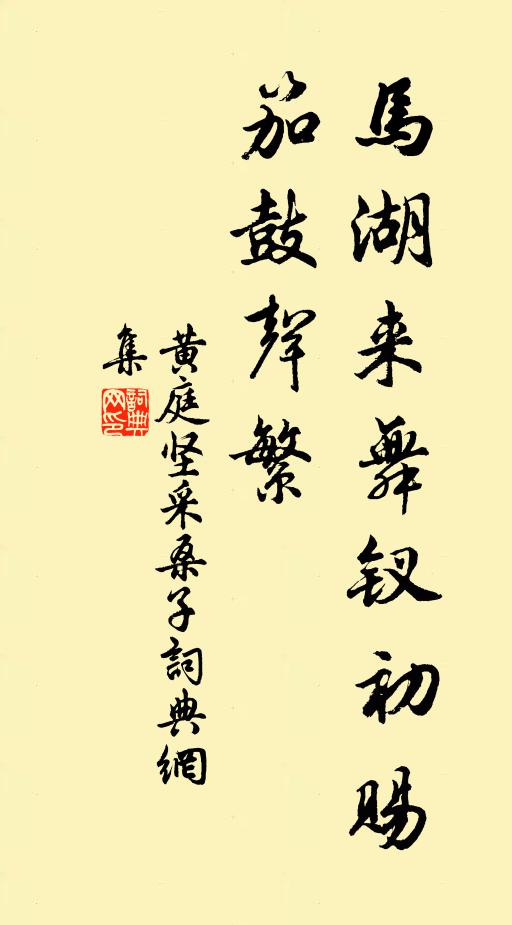 馬湖来舞釵初赐
笳鼓聲繁
黄庭坚采桑子詞典網
集
詞典网印